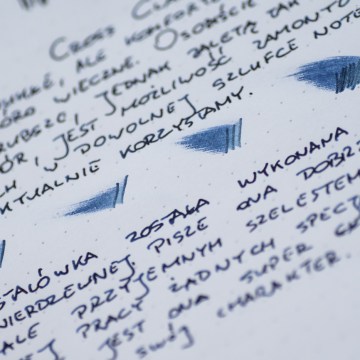 CROSS CL
ALE KOMFORT
PIÓRO WIECZNE. OSOBIŚCIE
GRUBSZE, JEDNAK ZALETĄ JAK
JEST MOŻLIWOŚĆ ZAMONTO
W DOWOLNEJ SZLUFCE NOTE
AKTUALNIE KORZYSTAMY.
STALÓWKA ZOSTAŁA WYKONANA
NIERDZEWNEJ. PISZE ONA DOBRZ
ALE PRZYJEMNYM SZELESTEM
EJ PRACY ŻADNYCH SPECJ
JEST ONA SUPER
SWÓJ CHARAKTER.